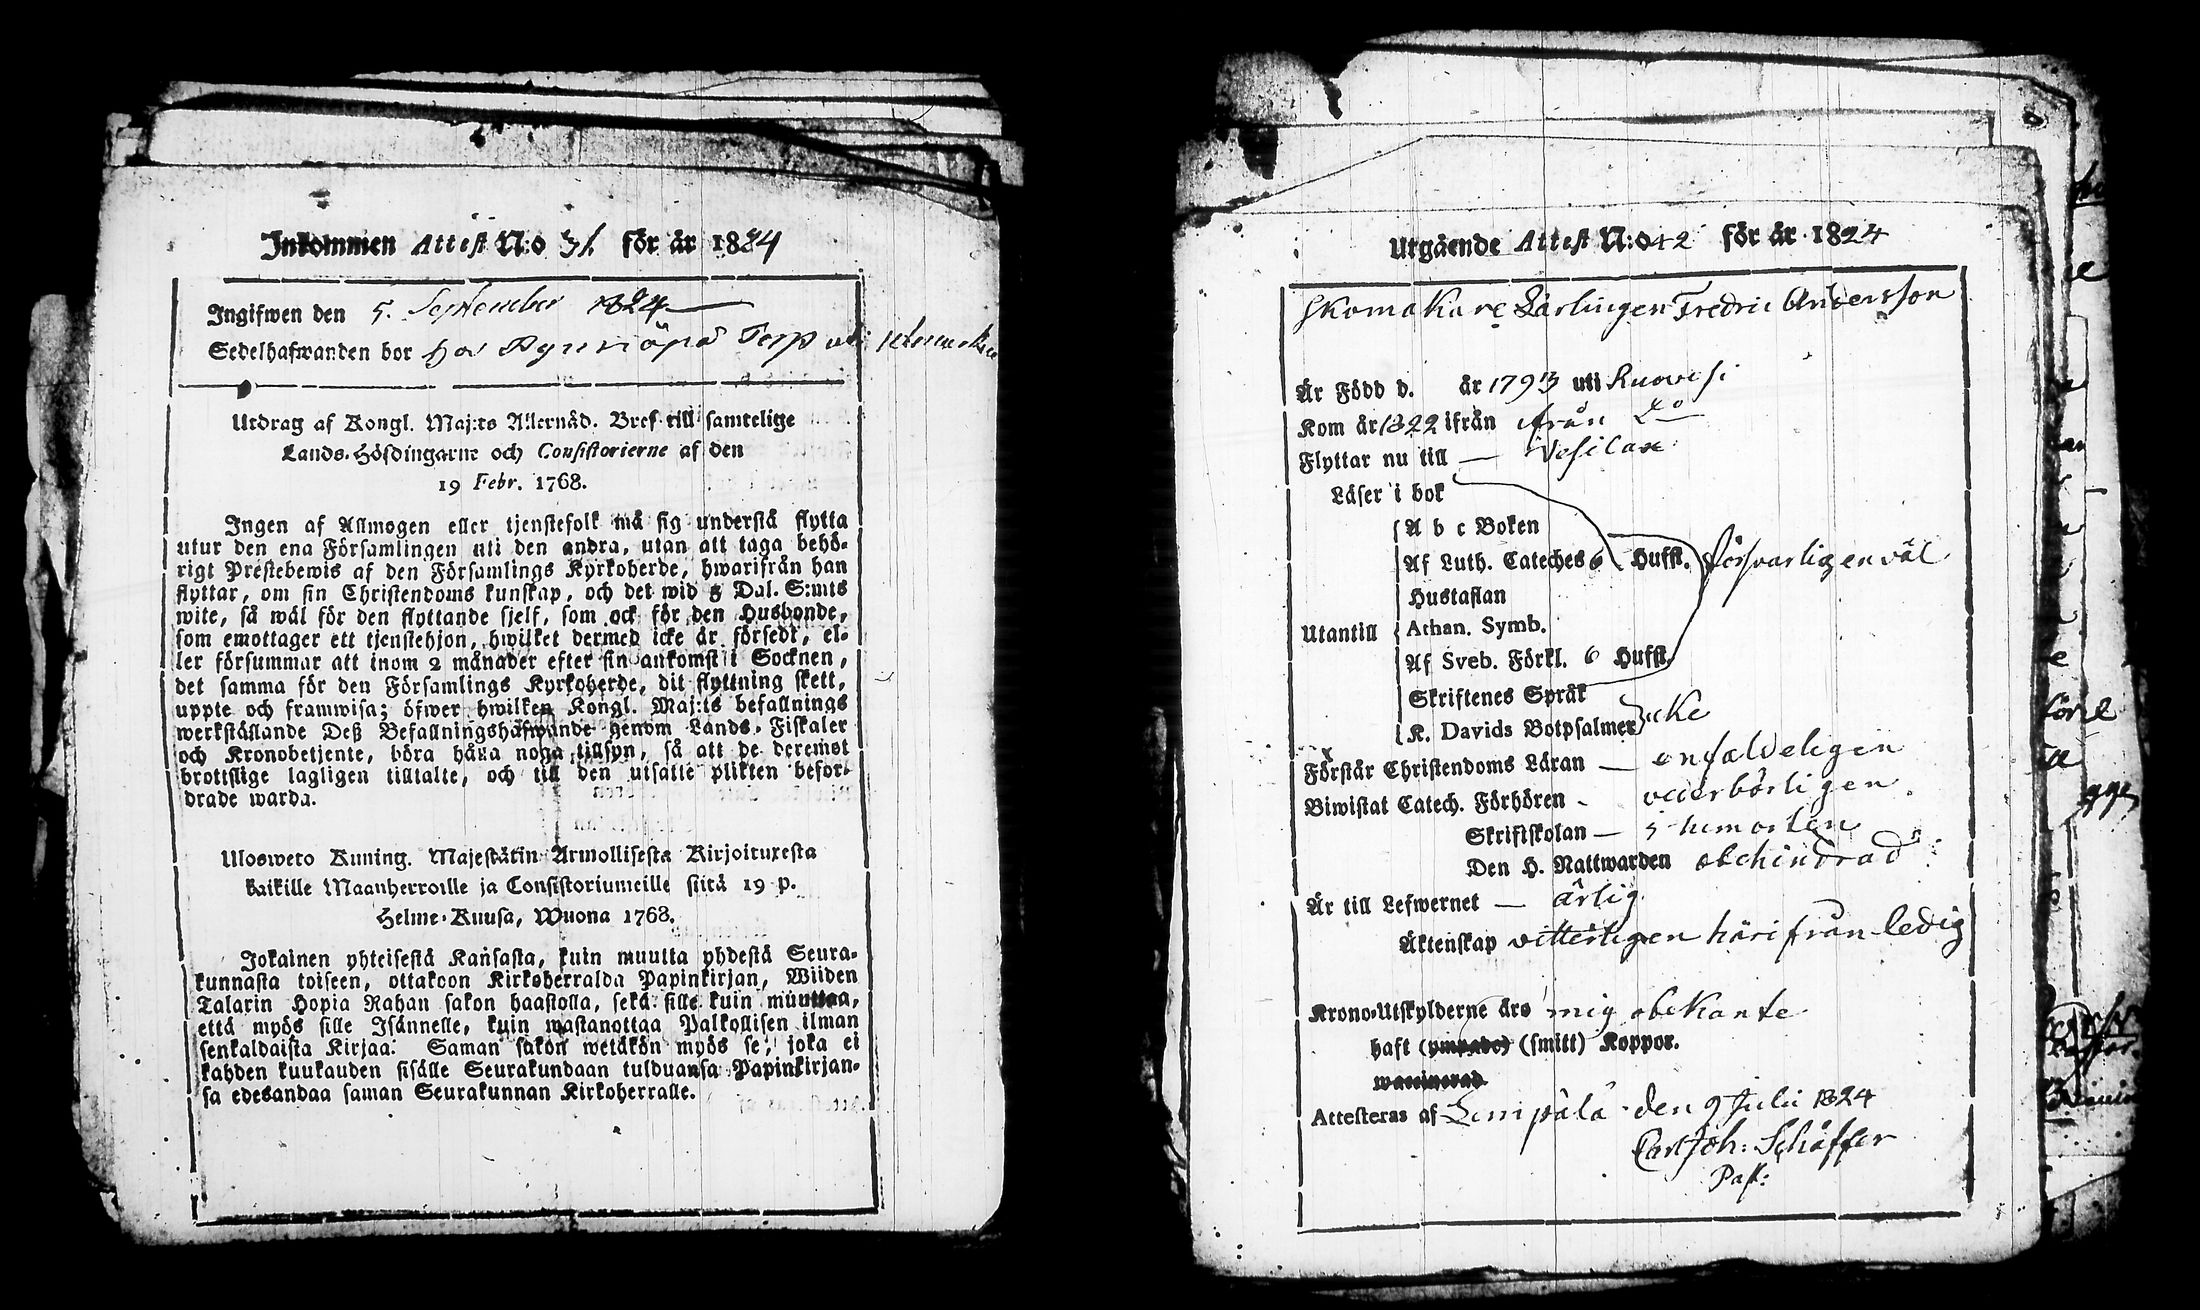 Inkommen Attest N:o 31 för år 1824
Ingifwen den 5. September 1824
Sedelhafwanden bor hos Torp
Utdrag af Kongl. Maj:ts Allernåd. Bref till samtelige
Lands-Höfdingarne och Consistorierne af den
19 Febr. 1768.
Ingen af Allmogen eller tjenstefolk må sig understå flytta
utur den ena Församlingen uti den andra, utan att taga behö-
rigt Prestebewis af den Församlings Kyrkoherde, hwarifrån han
flyttar, om sin Christendoms kunskap, och det wid 5 Dal. S:mts
wite, så wäl för den flyttande sjelf, som ock för den Husbonde,
som emottager ett tjenstehjon, hwilket dermed icke är försedt, el-
ler försummar att inom 2 månader efter sin ankomst i Socknen,
det samma för den Församlings Kyrkoherde, dit flyttning skett,
uppte och framwisa; öfwer hwilken Kongl. Maj:ts befallnings
werkställande Deß Befallningshafwande genom Lands-Fiskaler
och Kronobetjente, böra hålla noga tillsyn, så att de deremot
brottslige lagligen tilltalte, och till den utsatte plikten befor-
drade warda.
Ulosweto Kuning. Majestätin Armollisesta Kirjoituxesta
kaikille Maanherroille ja Consistoriumeille siitä 19 p.
Helme-Kuusa, Wuona 1768.
Jokainen yhteisestä Kansasta, kuin muutta yhdestä Seura-
kunnasta toiseen, ottakoon Kirkoherralda Papinkirjan, Wiiden
Talarin Hopia Rahan sakon haastolla, sekä sille kuin muuttaa,
että myös sille Isännelle, kuin wastanottaa Palkollisen ilman
senkaldaista Kirjaa: Saman sakon wetäkön myös se, joka ei
kahden kuukauden sisälle Seurakundaan tulduansa Papinkirjan-
sa edesandaa saman Seurakunnan Kirkoherralle.
Utgående Attest N:o 42 för år 1824
Skomakare Lärlingen Fredric Andersson
Är Född d. år 1793 uti Ruovesi
Kom år 1822 ifrån ifrån do
Flyttar nu till — Vesilax
Läser i bok
A b c Boken
Af Luth. Cateches 6 Huffst. försvarligen väl
Hustaflan
Utantill Athan. Symb.
Af Sveb. Förkl. 6 Huffst.
Skriftenes Språk
K. Davids Botpsalmer icke
Förstår Christendoms Läran — enfaldeligen
Biwistat Catech. Förhören - vederbörligen
Skriftskolan — i hemorten
Den H. Nattwarden obehindrad
Är till Lefwernet — ärlig
Äktenskap vitterligen härifrån ledig
Krono-Utskylderne äro mig obekante
haft (ympade) (smitt) Koppor.
waccinerad
Attesteras af Lempälä den 9 Julii 1824
Carl Joh: Schäffer
Past: